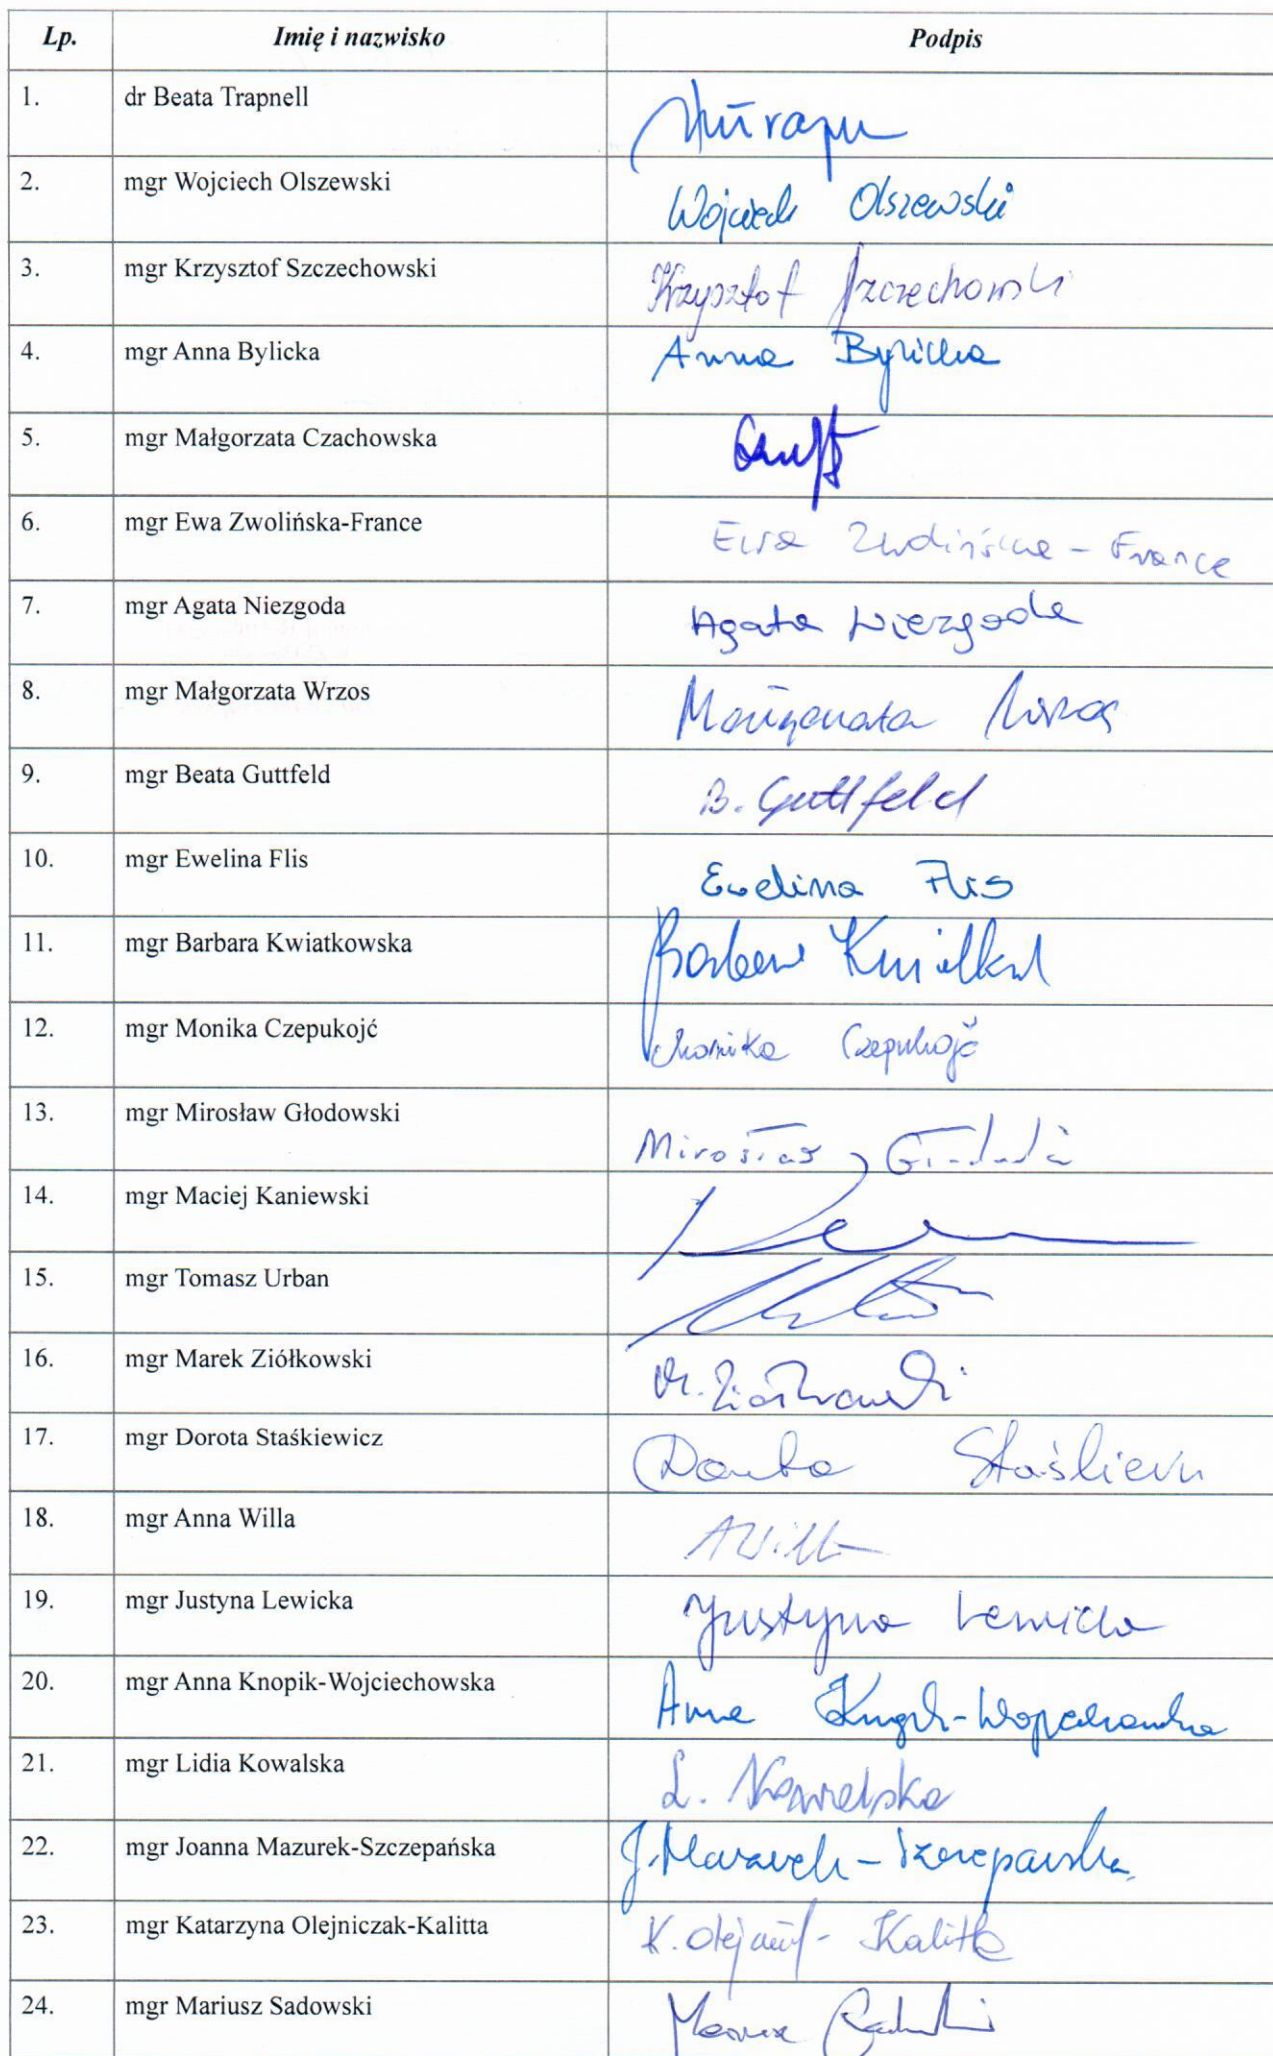 Lp. Imię i nazwisko Podpis
1. dr Beata Trapnell
2. mgr Wojciech Olszewski Wojciech Olszewski
3. mgr Krzysztof Szczechowski Krzysztof Szczechowski
4. mgr Anna Bylicka Anna Bylicka
5. mgr Małgorzata Czachowska
6. mgr Ewa Zwolińska-France Ewa Zwolińska - France
7. mgr Agata Niezgoda Agata Niezgoda
8. mgr Małgorzata Wrzos Małgorzata Wrzos
9. mgr Beata Guttfeld B. Guttfeld
10. mgr Ewelina Flis Ewelina Flis
11. mgr Barbara Kwiatkowska Barbara
12. mgr Monika Czepukojć Monika Czepukojć
13. mgr Mirosław Głodowski Mirosław
14. mgr Maciej Kaniewski
15. mgr Tomasz Urban
16. mgr Marek Ziółkowski M. Ziółkowski
17. mgr Dorota Staśkiewicz Dorota Staśkiewicz
18. mgr Anna Willa AWilla
19. mgr Justyna Lewicka Justyna Lewicka
20. mgr Anna Knopik-Wojciechowska Anna Knopik-Wojciechowska
21. mgr Lidia Kowalska L. Kowalska
22. mgr Joanna Mazurek-Szczepańska J. Mazurek-Szczepańska
23. mgr Katarzyna Olejniczak-Kalitta K. Kalitta
24. mgr Mariusz Sadowski